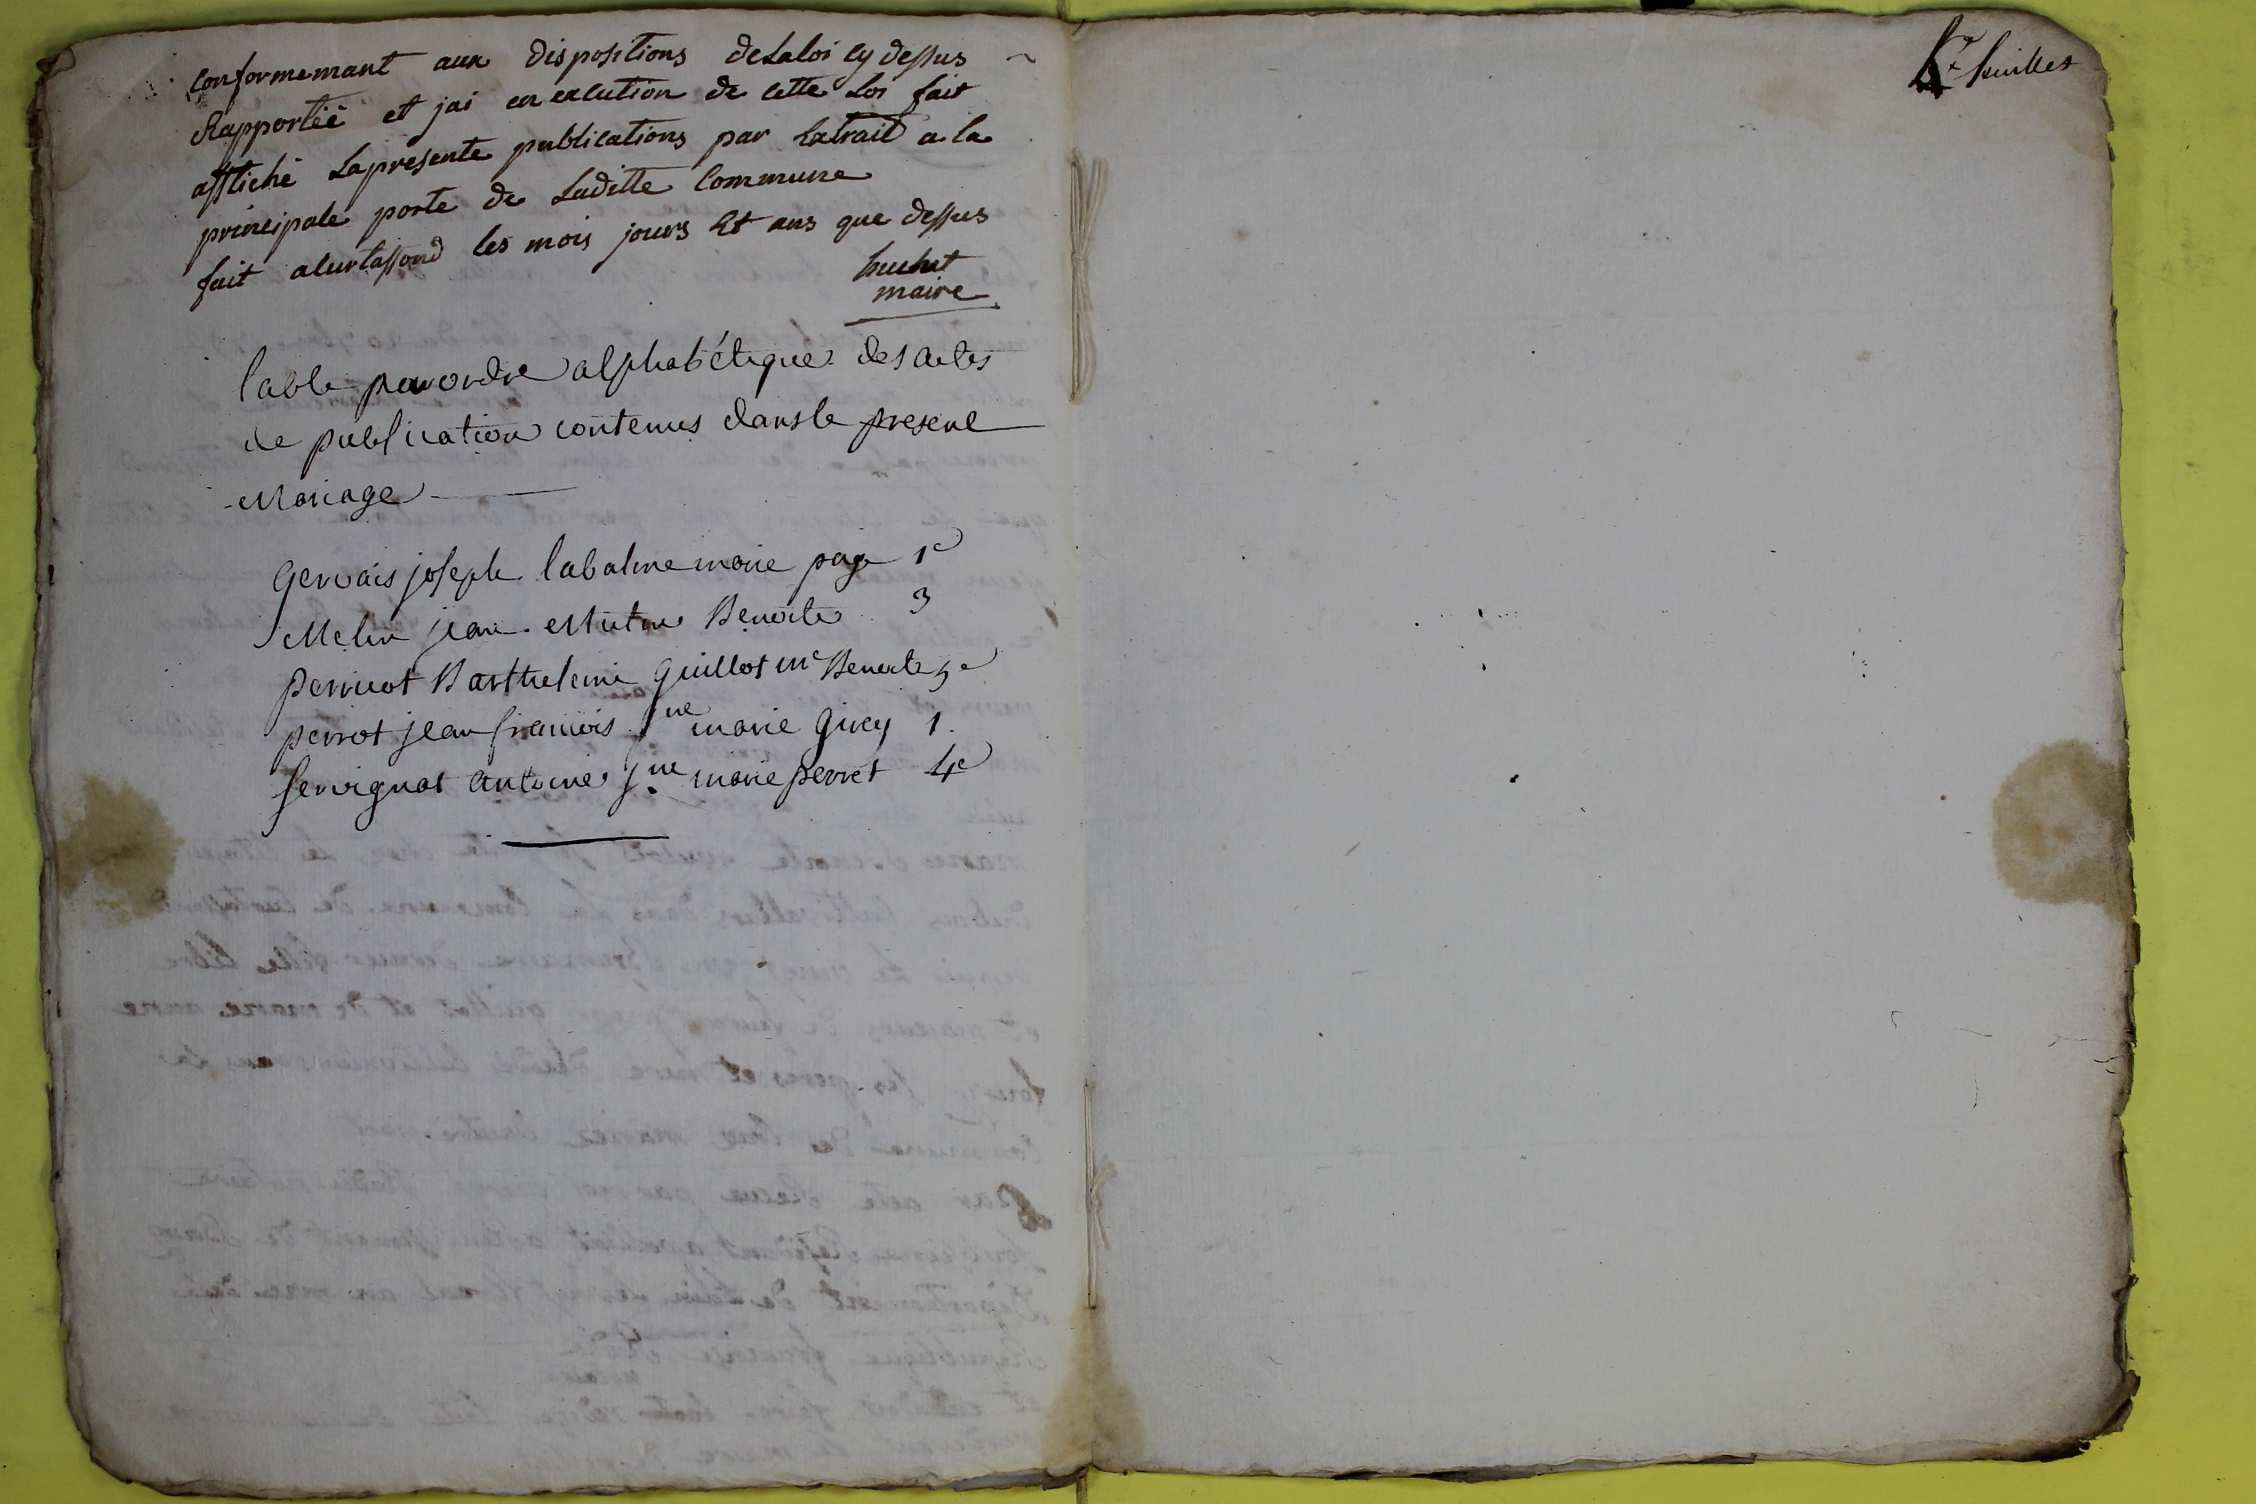 conformemant aux dispositions de Laloi cy dessus
Rapportéé et jai en exécution de cette Loi fait
affiché La présente publications par Extrait a la
principale porte de Laditte Commune
fait a curtassond les mois jours Et ans que dessus
huchet
maire
table par ordre alphabétique des actes
de publication contenus dans le present
Mariage
Gervais joseph labalme marie page 1e
Melin jean Benoite 3
perrucot Barthelemi guillot me Benoite 5e
perrot jean francois jne marie givey 1.
servignat antoine jne marie perret 4e
feuillet